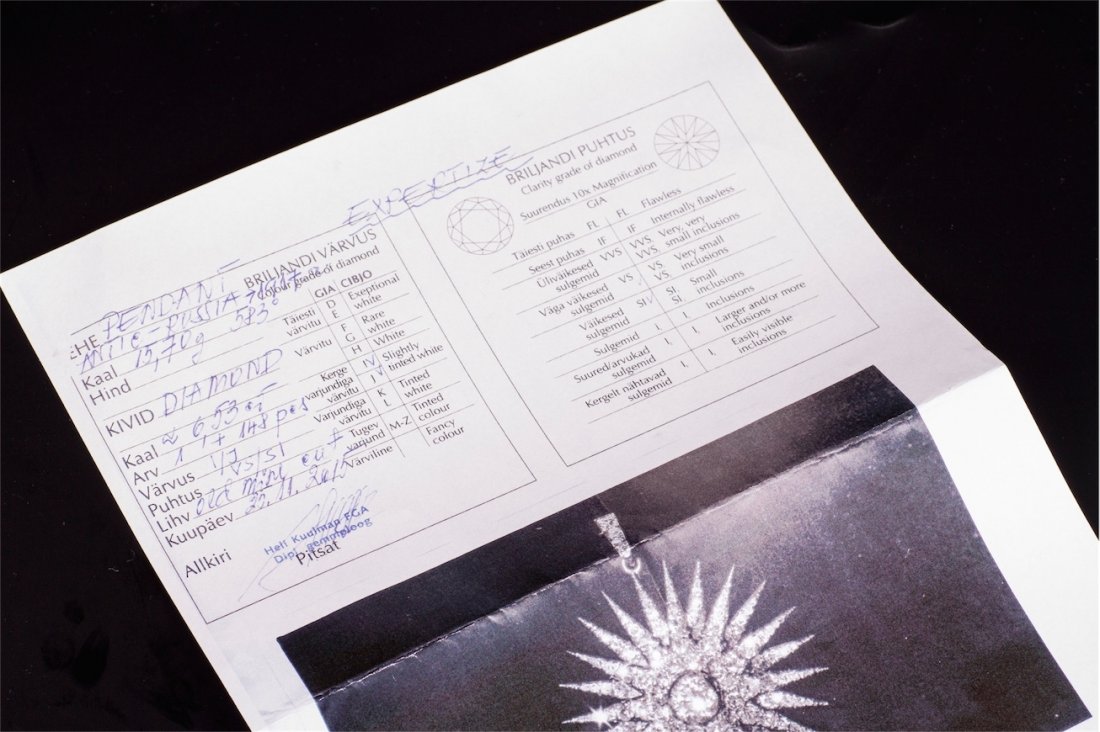 EXPERTIZE
BRILJANDI VÄRVUS
Colour grade of diamond
EHE PENDANT
ANTIC - RUSSIA
583°
Kaal 15,70g
Hind
KIVID DIAMOND
Kaal ≈ 6.53 ct
Arv 1 + 148 pcs
Värvus I/J
Puhtus VS/SI
Lihv old mine cut
Kuupäev
Allkiri
Pitsat
Heli Kuulman FGA
Dipl. gemmoloog
GIA CIBJO
Täiesti värvitu D Exeptional
E white
Värvitu F Rare
G white
H White
Kerge varjundiga värvitu I Slightly
J tinted white
Varjundiga värvitu K Tinted
L white
Tugev varjund M-Z Tinted colour
Värviline Fancy colour
BRILJANDI PUHTUS
Clarity grade of diamond
Suurendus 10x Magnification
GIA
Täiesti puhas FL FL Flawless
Seest puhas IF IF Internally flawless
Üliväikesed sulgemid VVS VVS, Very, very
VVS, small inclusions
Väga väikesed sulgemid VS VS, Very small
VS, inclusions
Väikesed sulgemid SI SI, Small
SI, inclusions
Sulgemid I, I, Inclusions
Suured/arvukad sulgemid I, I, Larger and/or more inclusions
Kergelt nähtavad sulgemid I, I, Easily visible inclusions